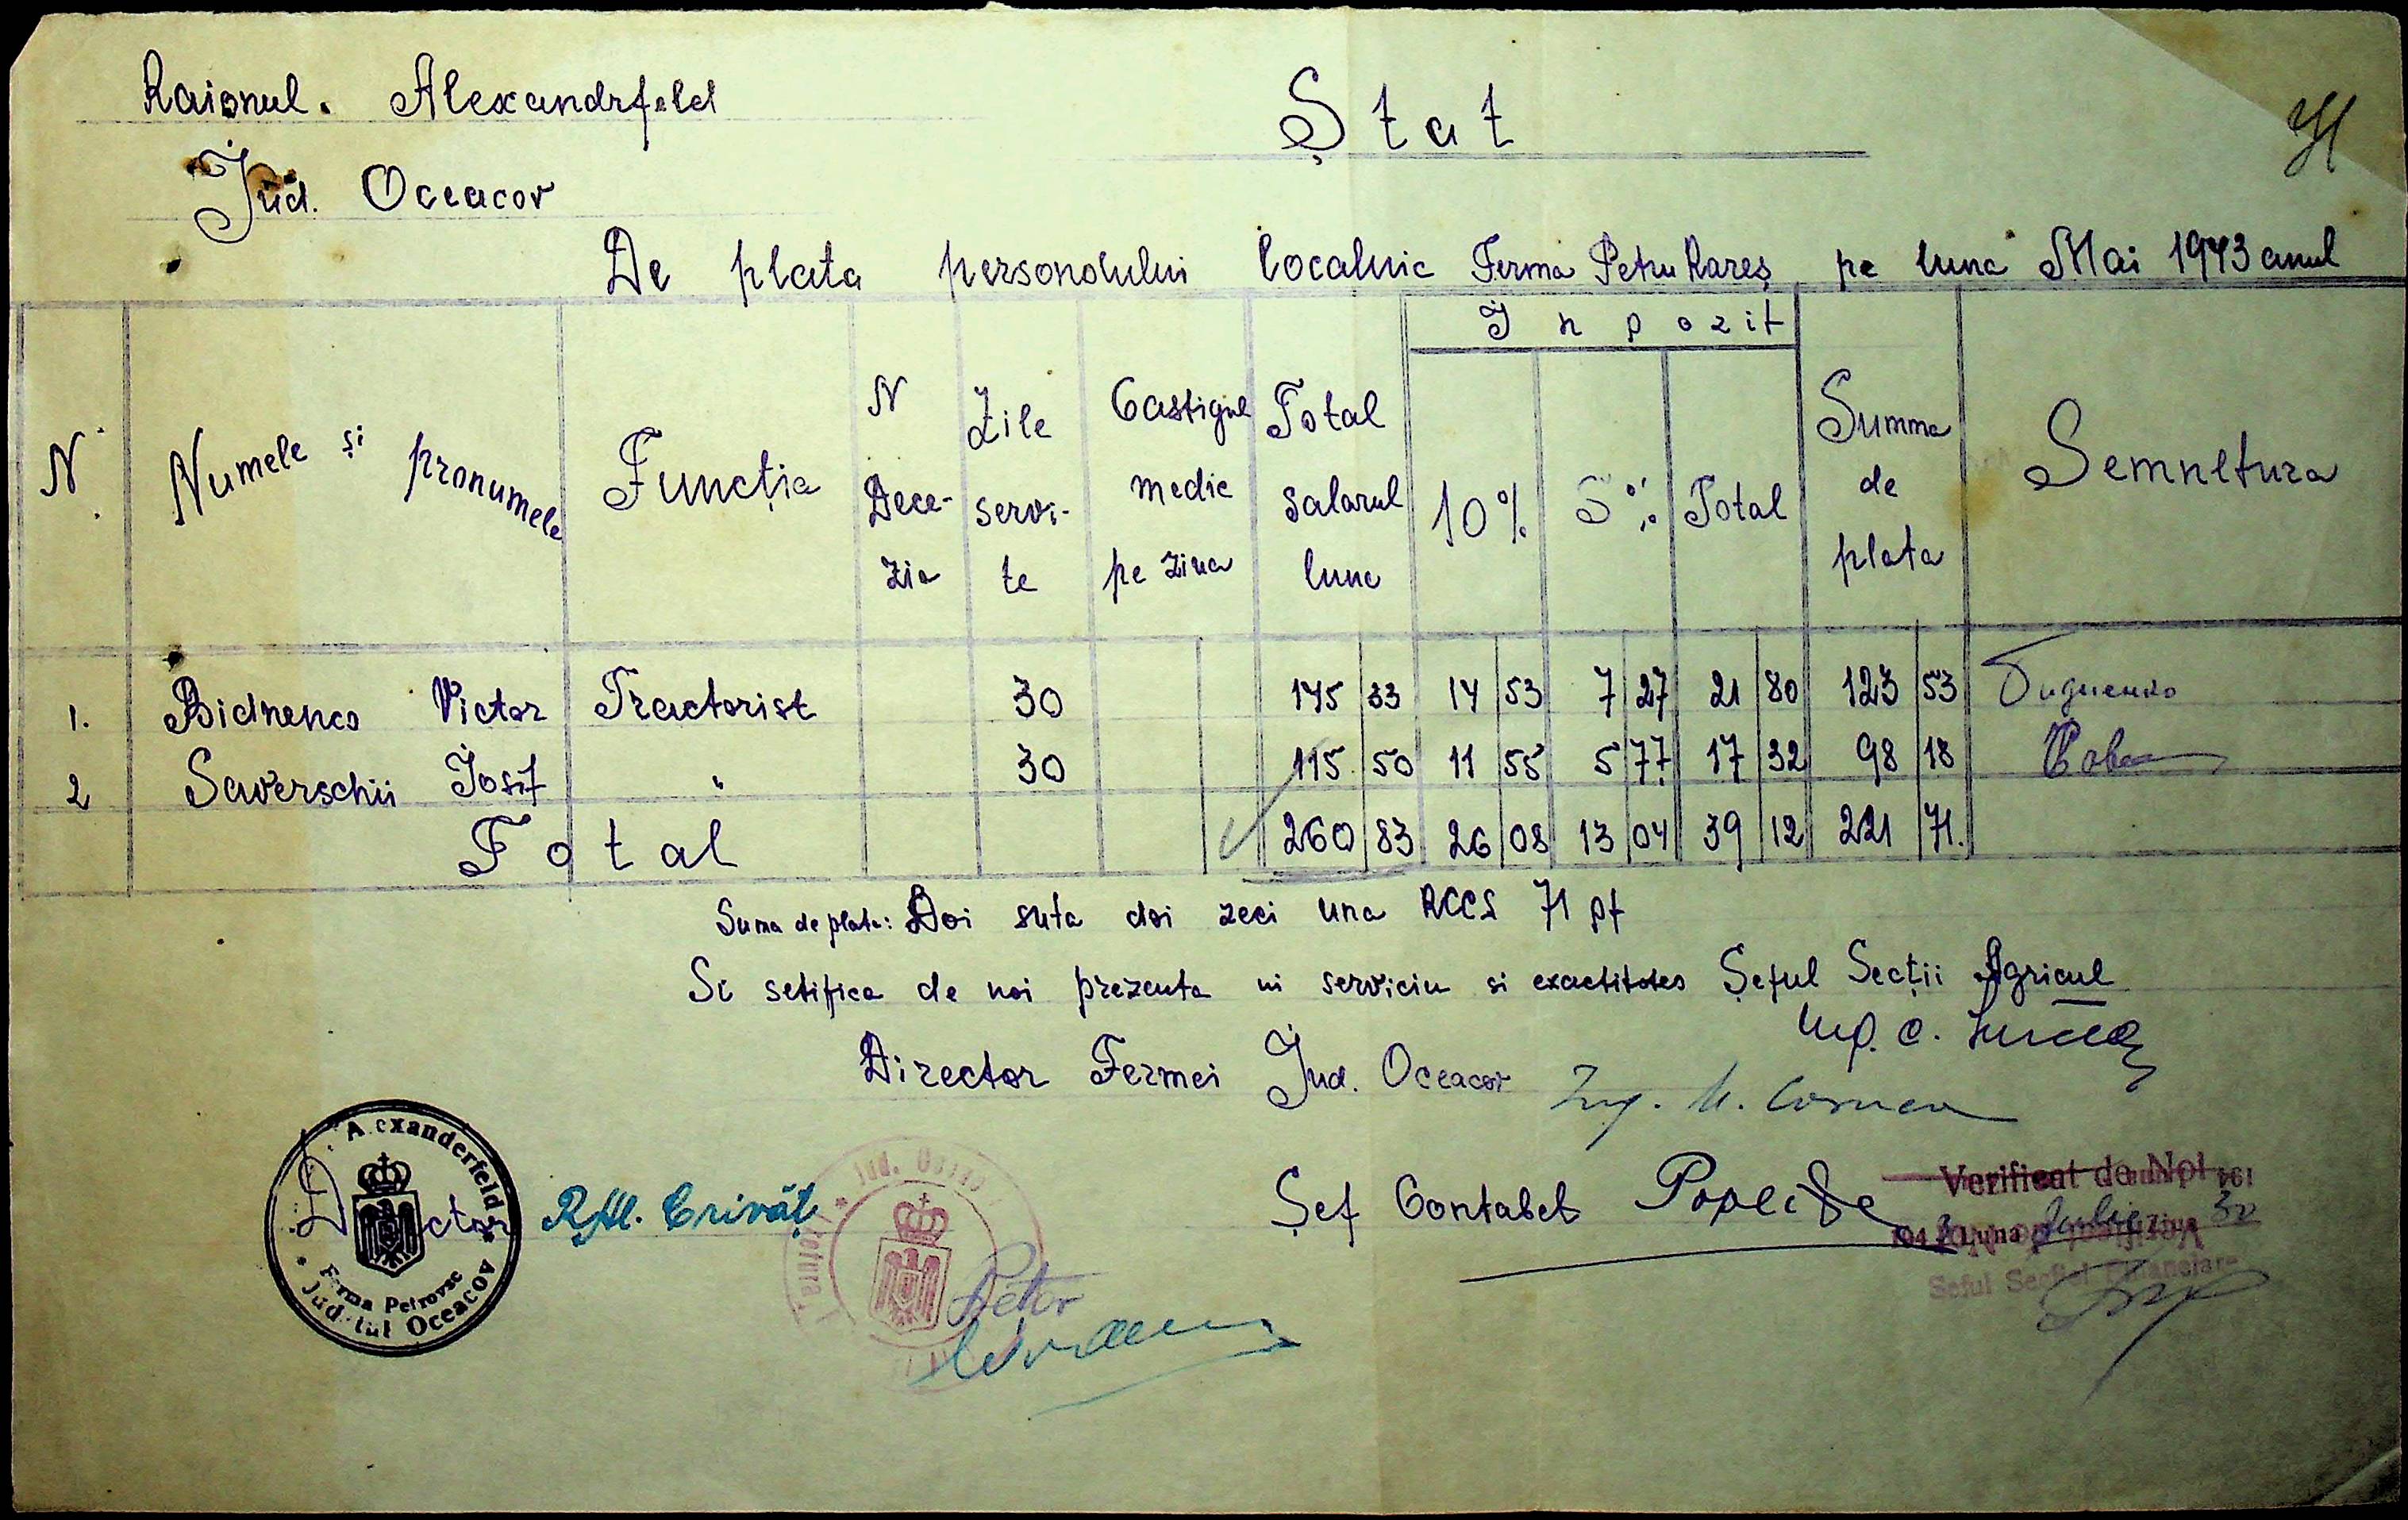 Raionul. Alexandrfeld
Ștat
Jud. Oceacov
De plata personolului localnic Ferma Petru Rareș pe luna Mai 1943 anul
N. Numele și pronumele Funcția N Decezia Zile servite Castigul medie pe ziua Total salarul luna Inpozit 10% 5% Total Summa de plata Semnetura
1. Bidnenco Victor Tractorist 30 145 33 14 53 7 27 21 80 123 53
2 Saverschii Josif " 30 115 50 11 55 5 77 17 32 98 18
Total 260 83 26 08 13 04 39 12 221 71.
Suma de plata: Doi suta doi zeci una RCCS 71 pf
Se setifica de noi prezenta in serviciu si exactitotes Șeful Secții Agricul
Director Fermei Jud. Oceacov Ing. C.
Ing. M. Cornea
Alexanderfeld
Ferma Petrovsc
Județul Oceacov
Director
Crivăț
Jud. Oceacov
Pretor
Șef Contabel
Verificat de Noi
194 3 Luna Iulie
Seful Sectiei Financiare